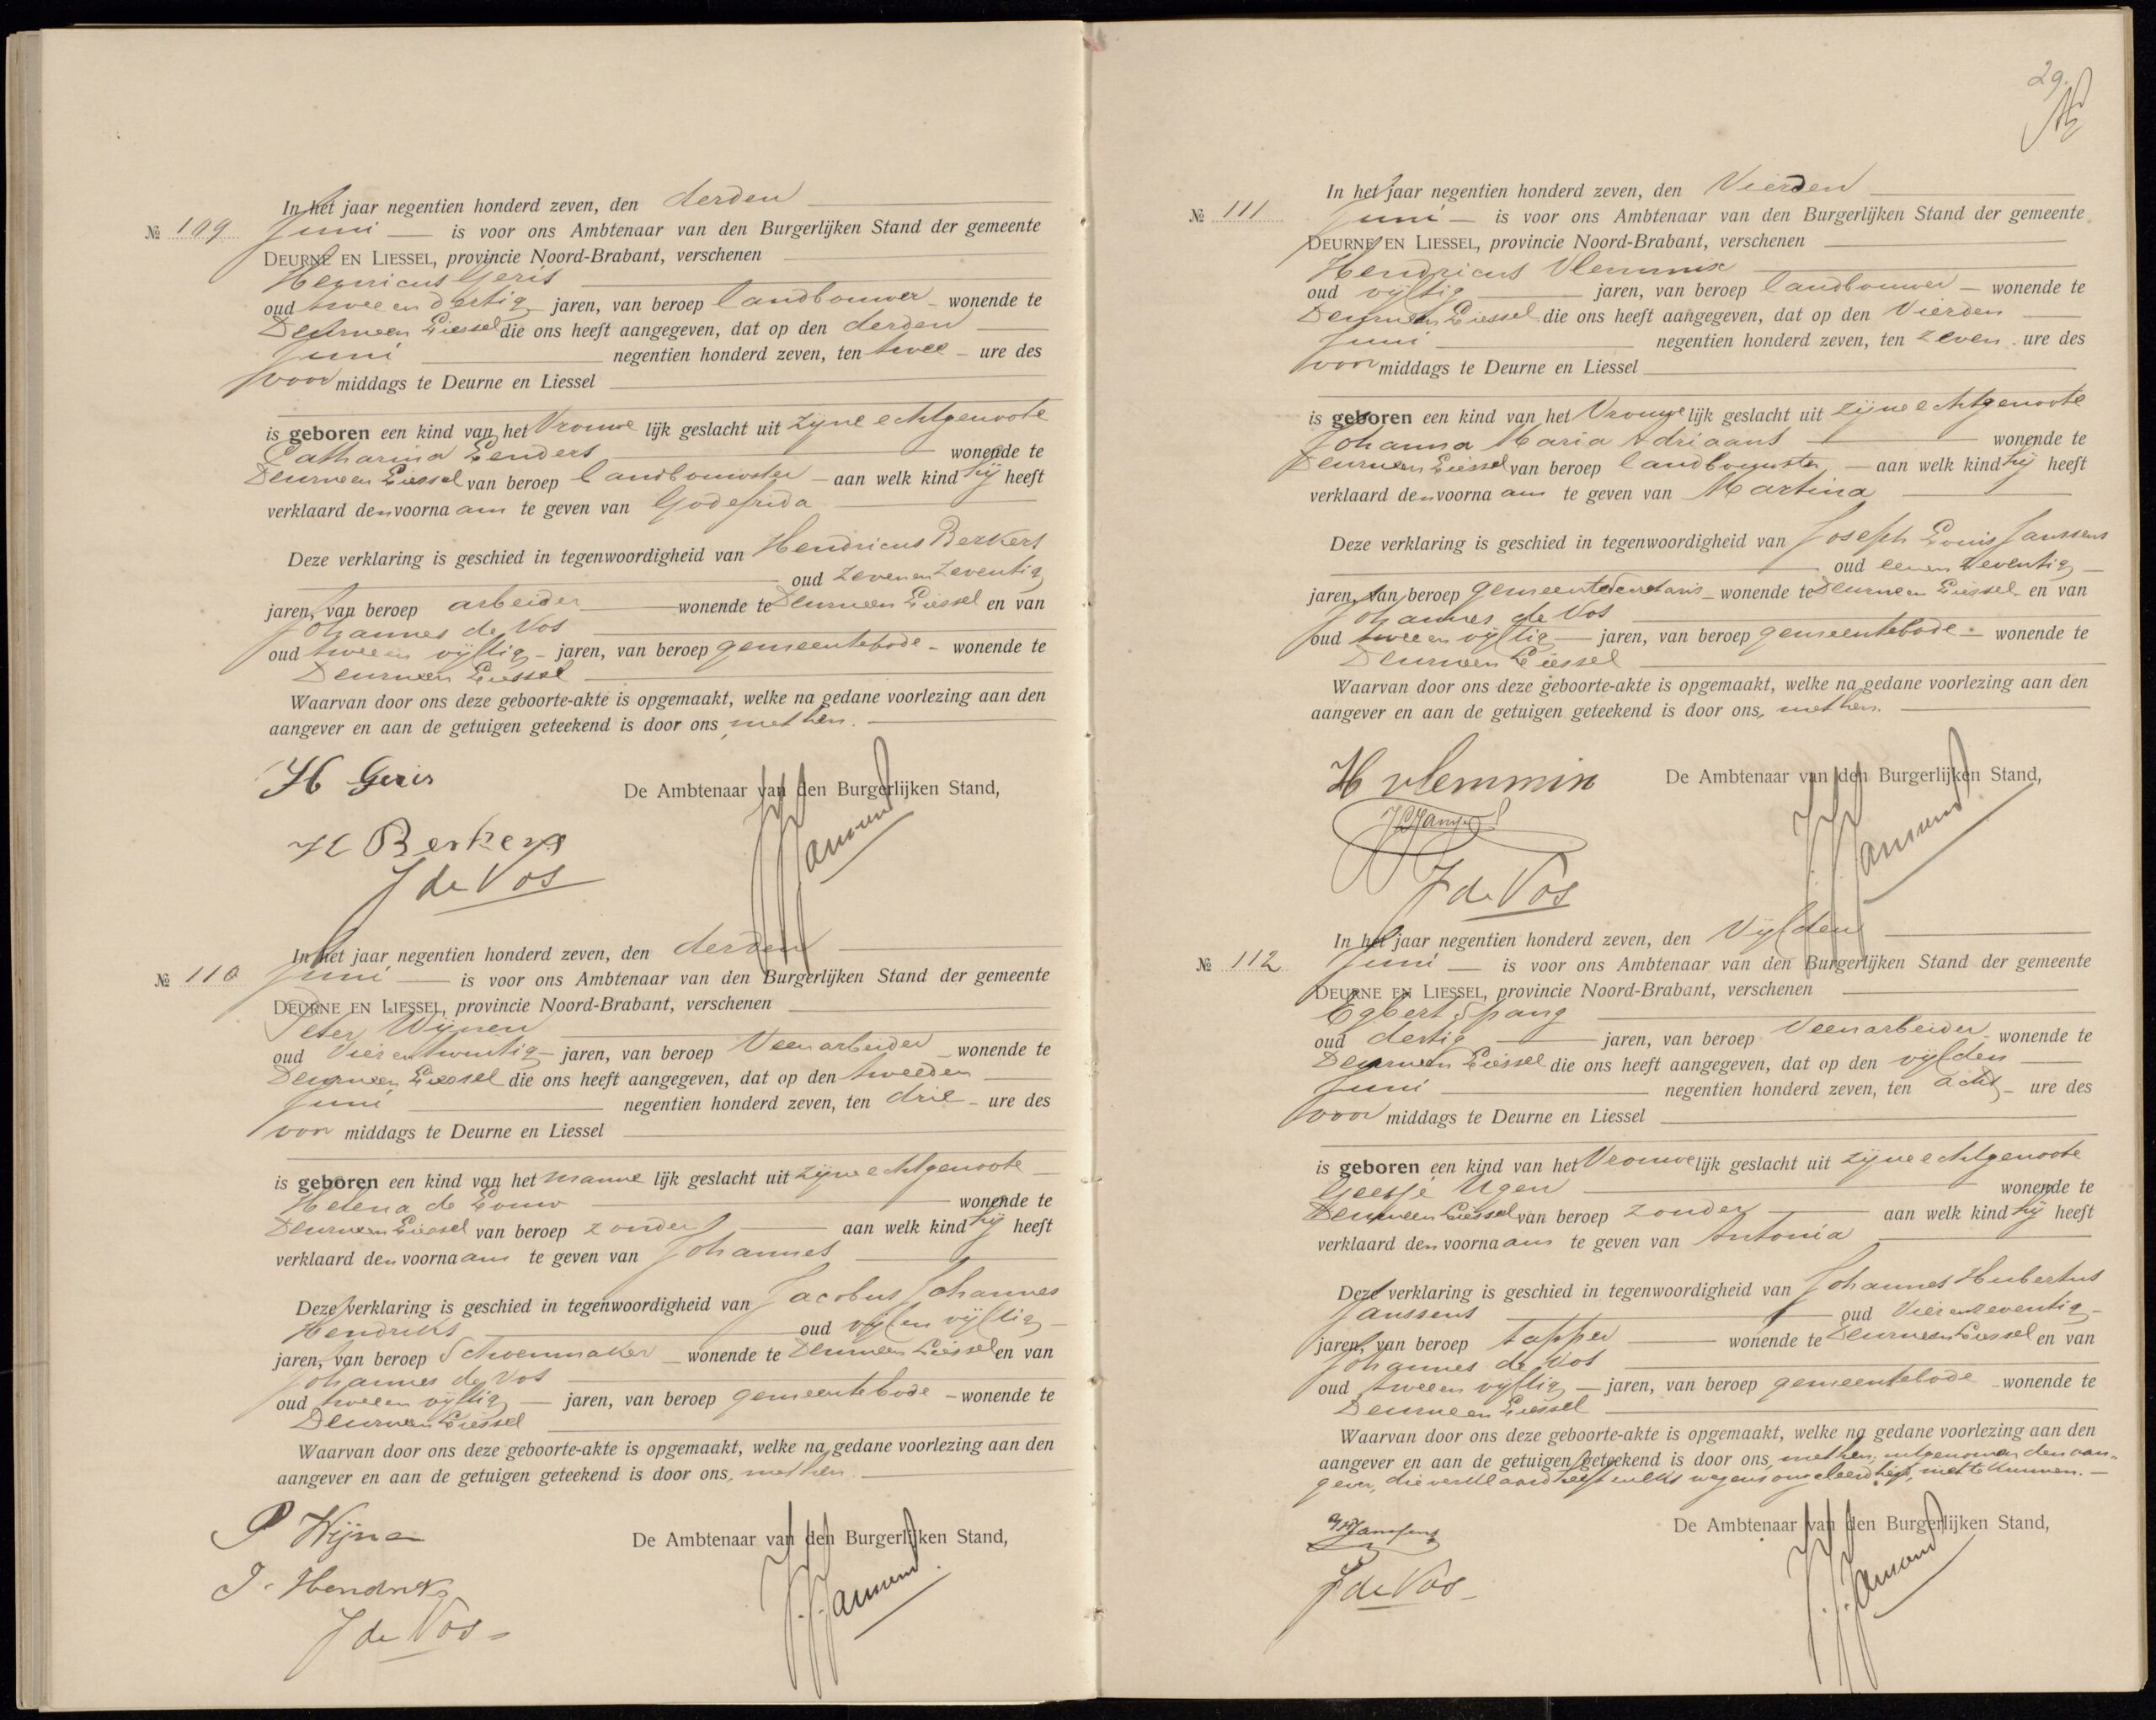 In het jaar negentien honderd zeven, den derden
№ 109 Juni is voor ons Ambtenaar van den Burgerlijken Stand der gemeente
DEURNE EN LIESSEL, provincie Noord-Brabant, verschenen
Henricus Geris
oud twee en dertig jaren, van beroep landbouwer wonende te
Deurne en Liessel die ons heeft aangegeven, dat op den derden
Juni negentien honderd zeven, ten twee ure des
voor middags te Deurne en Liessel
is geboren een kind van het Vrouwe lijk geslacht uit zijne echtgenoote
Catharina Lenders wonende te
Deurne en Liessel van beroep landbouwster aan welk kind hij heeft
verklaard den voorna am te geven van Godefrida
Deze verklaring is geschied in tegenwoordigheid van Hendricus Berkers
oud zeven en zeventig
jaren, van beroep arbeider wonende te Deurne en Liessel en van
Johannes de Vos
oud twee en vijftig jaren, van beroep gemeentebode wonende te
Deurne en Liessel
Waarvan door ons deze geboorte-akte is opgemaakt, welke na gedane voorlezing aan den
aangever en aan de getuigen geteekend is door ons, met hen.
H Geris
De Ambtenaar van den Burgerlijken Stand,
H Berkers
J de Vos
In het jaar negentien honderd zeven, den derden
№ 110 Juni is voor ons Ambtenaar van den Burgerlijken Stand der gemeente
DEURNE EN LIESSEL, provincie Noord-Brabant, verschenen
Peter Wijnen
oud Vier en twintig jaren, van beroep Veenarbeider wonende te
Deurne en Liessel die ons heeft aangegeven, dat op den tweeden
Juni negentien honderd zeven, ten drie ure des
voor middags te Deurne en Liessel
is geboren een kind van het manne lijk geslacht uit zijne echtgenoote
Helena de Louw wonende te
Deurne en Liessel van beroep zonder aan welk kind hij heeft
verklaard den voorna am te geven van Johannes
Deze verklaring is geschied in tegenwoordigheid van Jacobus Johannes
Hendriks oud vijf en vijftig
jaren, van beroep Schoenmaker wonende te Deurne en Liessel en van
Johannes de Vos
oud twee en vijftig jaren, van beroep gemeentebode wonende te
Deurne en Liessel
Waarvan door ons deze geboorte-akte is opgemaakt, welke na gedane voorlezing aan den
aangever en aan de getuigen geteekend is door ons, met hen.
P Wijnen
De Ambtenaar van den Burgerlijken Stand,
J. Hendriks
J de Vos
29.
In het jaar negentien honderd zeven, den Vierden
№ 111 Juni is voor ons Ambtenaar van den Burgerlijken Stand der gemeente
DEURNE EN LIESSEL, provincie Noord-Brabant, verschenen
Hendricus Vlemmix
oud vijftig jaren, van beroep landbouwer wonende te
Deurne en Liessel die ons heeft aangegeven, dat op den Vierden
Juni negentien honderd zeven, ten zeven ure des
voor middags te Deurne en Liessel
is geboren een kind van het Vrouwe lijk geslacht uit zijne echtgenoote
Johanna Maria Adriaans wonende te
Deurne en Liessel van beroep landbouwster aan welk kind hij heeft
verklaard den voorna am te geven van Martina
Deze verklaring is geschied in tegenwoordigheid van Joseph Louis Janssens
oud een en zeventig
jaren, van beroep gemeentesecretaris wonende te Deurne en Liessel en van
Johannes de Vos
oud twee en vijftig jaren, van beroep gemeentebode wonende te
Deurne en Liessel
Waarvan door ons deze geboorte-akte is opgemaakt, welke na gedane voorlezing aan den
aangever en aan de getuigen geteekend is door ons, met hen.
H vlemmix
De Ambtenaar van den Burgerlijken Stand,
J de Vos
In het jaar negentien honderd zeven, den Vijfden
№ 112 Juni is voor ons Ambtenaar van den Burgerlijken Stand der gemeente
DEURNE EN LIESSEL, provincie Noord-Brabant, verschenen
Egbert Spang
oud dertig jaren, van beroep Veenarbeider wonende te
Deurne en Liessel die ons heeft aangegeven, dat op den vijfden
Juni negentien honderd zeven, ten acht ure des
voor middags te Deurne en Liessel
is geboren een kind van het Vrouwe lijk geslacht uit zijne echtgenoote
Geesje Ugen wonende te
Deurne en Liessel van beroep zonder aan welk kind hij heeft
verklaard den voorna am te geven van Antonia
Deze verklaring is geschied in tegenwoordigheid van Johannes Hubertus
Janssens oud Vier en zeventig
jaren, van beroep tapper wonende te Deurne en Liessel en van
Johannes de Vos
oud twee en vijftig jaren, van beroep gemeentebode wonende te
Deurne en Liessel
Waarvan door ons deze geboorte-akte is opgemaakt, welke na gedane voorlezing aan den
aangever en aan de getuigen geteekend is door ons, met hen, uitgenomen den aan-
gever, die verklaard heeft zulks wegens ongeleerdheid, niet te kunnen.
De Ambtenaar van den Burgerlijken Stand,
J de Vos